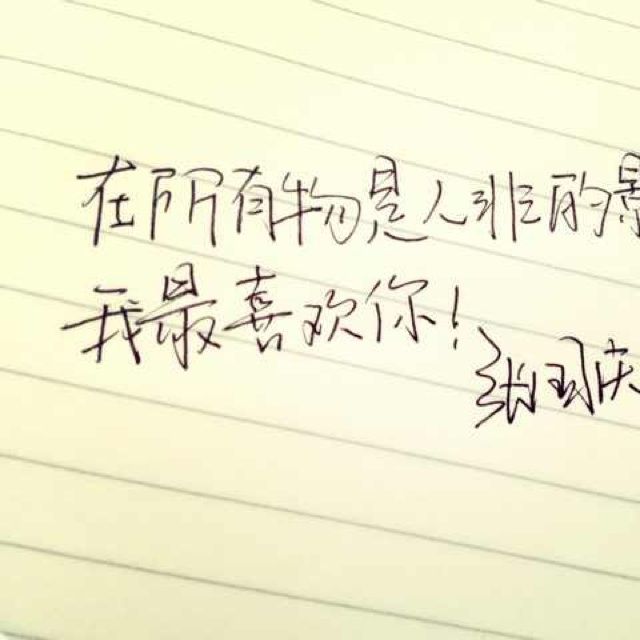 在所有物是人非的景
我最喜欢你!
张国庆